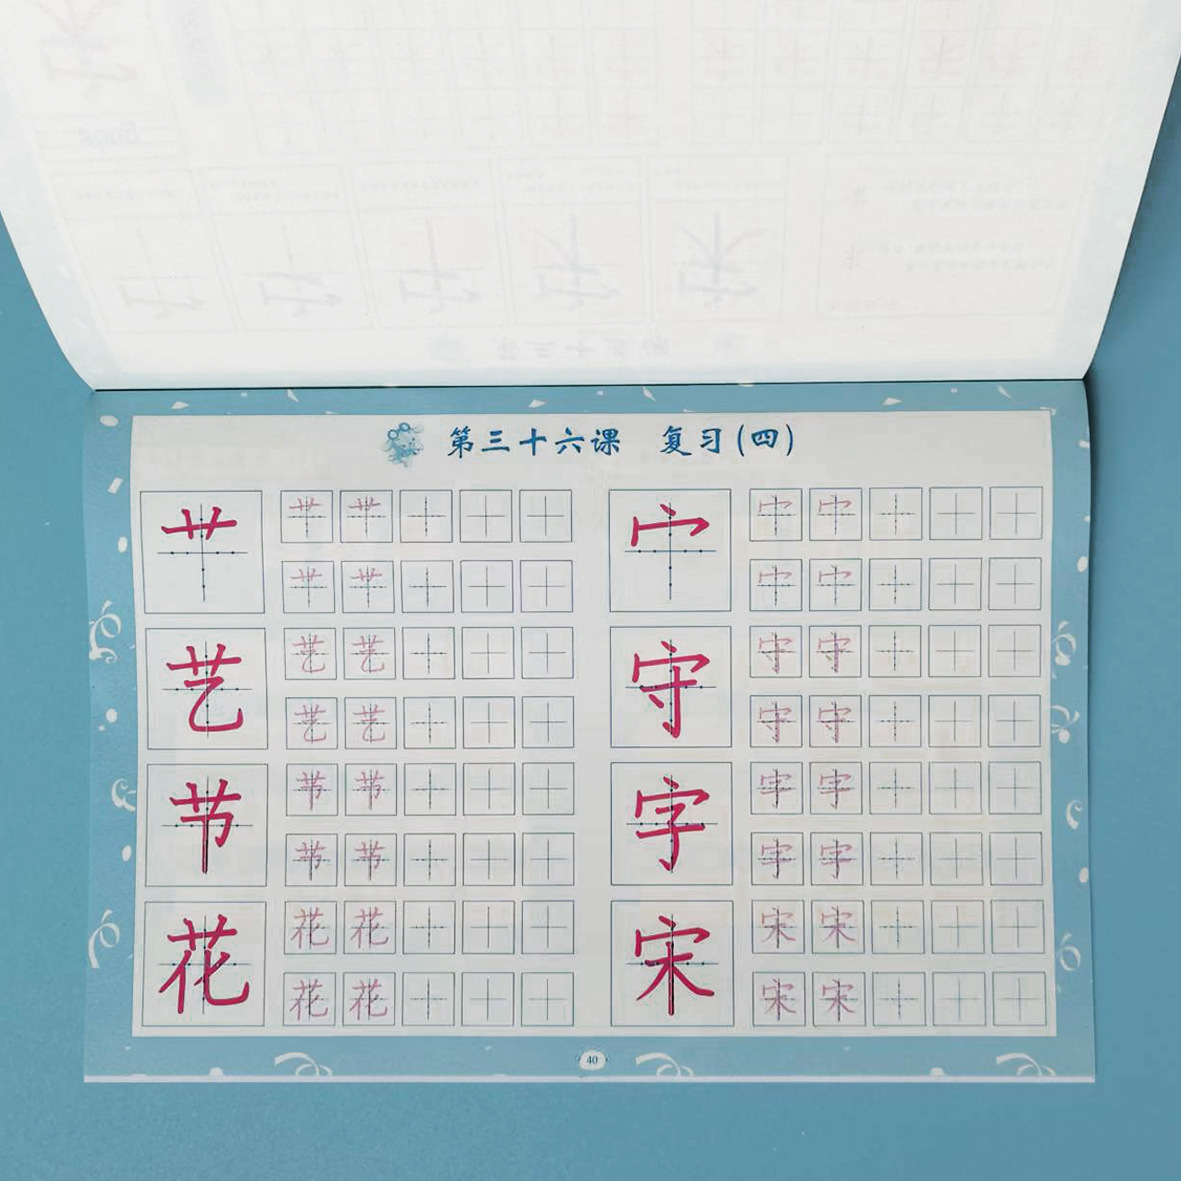 第三十六课 复习(四)
艹 艹 艹 宀 宀 宀
艹 艹 宀 宀
艺 艺 艺 守 守 守
艺 艺 守 守
节 节 节 字 字 字
节 节 字 字
花 花 花 宋 宋 宋
花 花 宋 宋
40